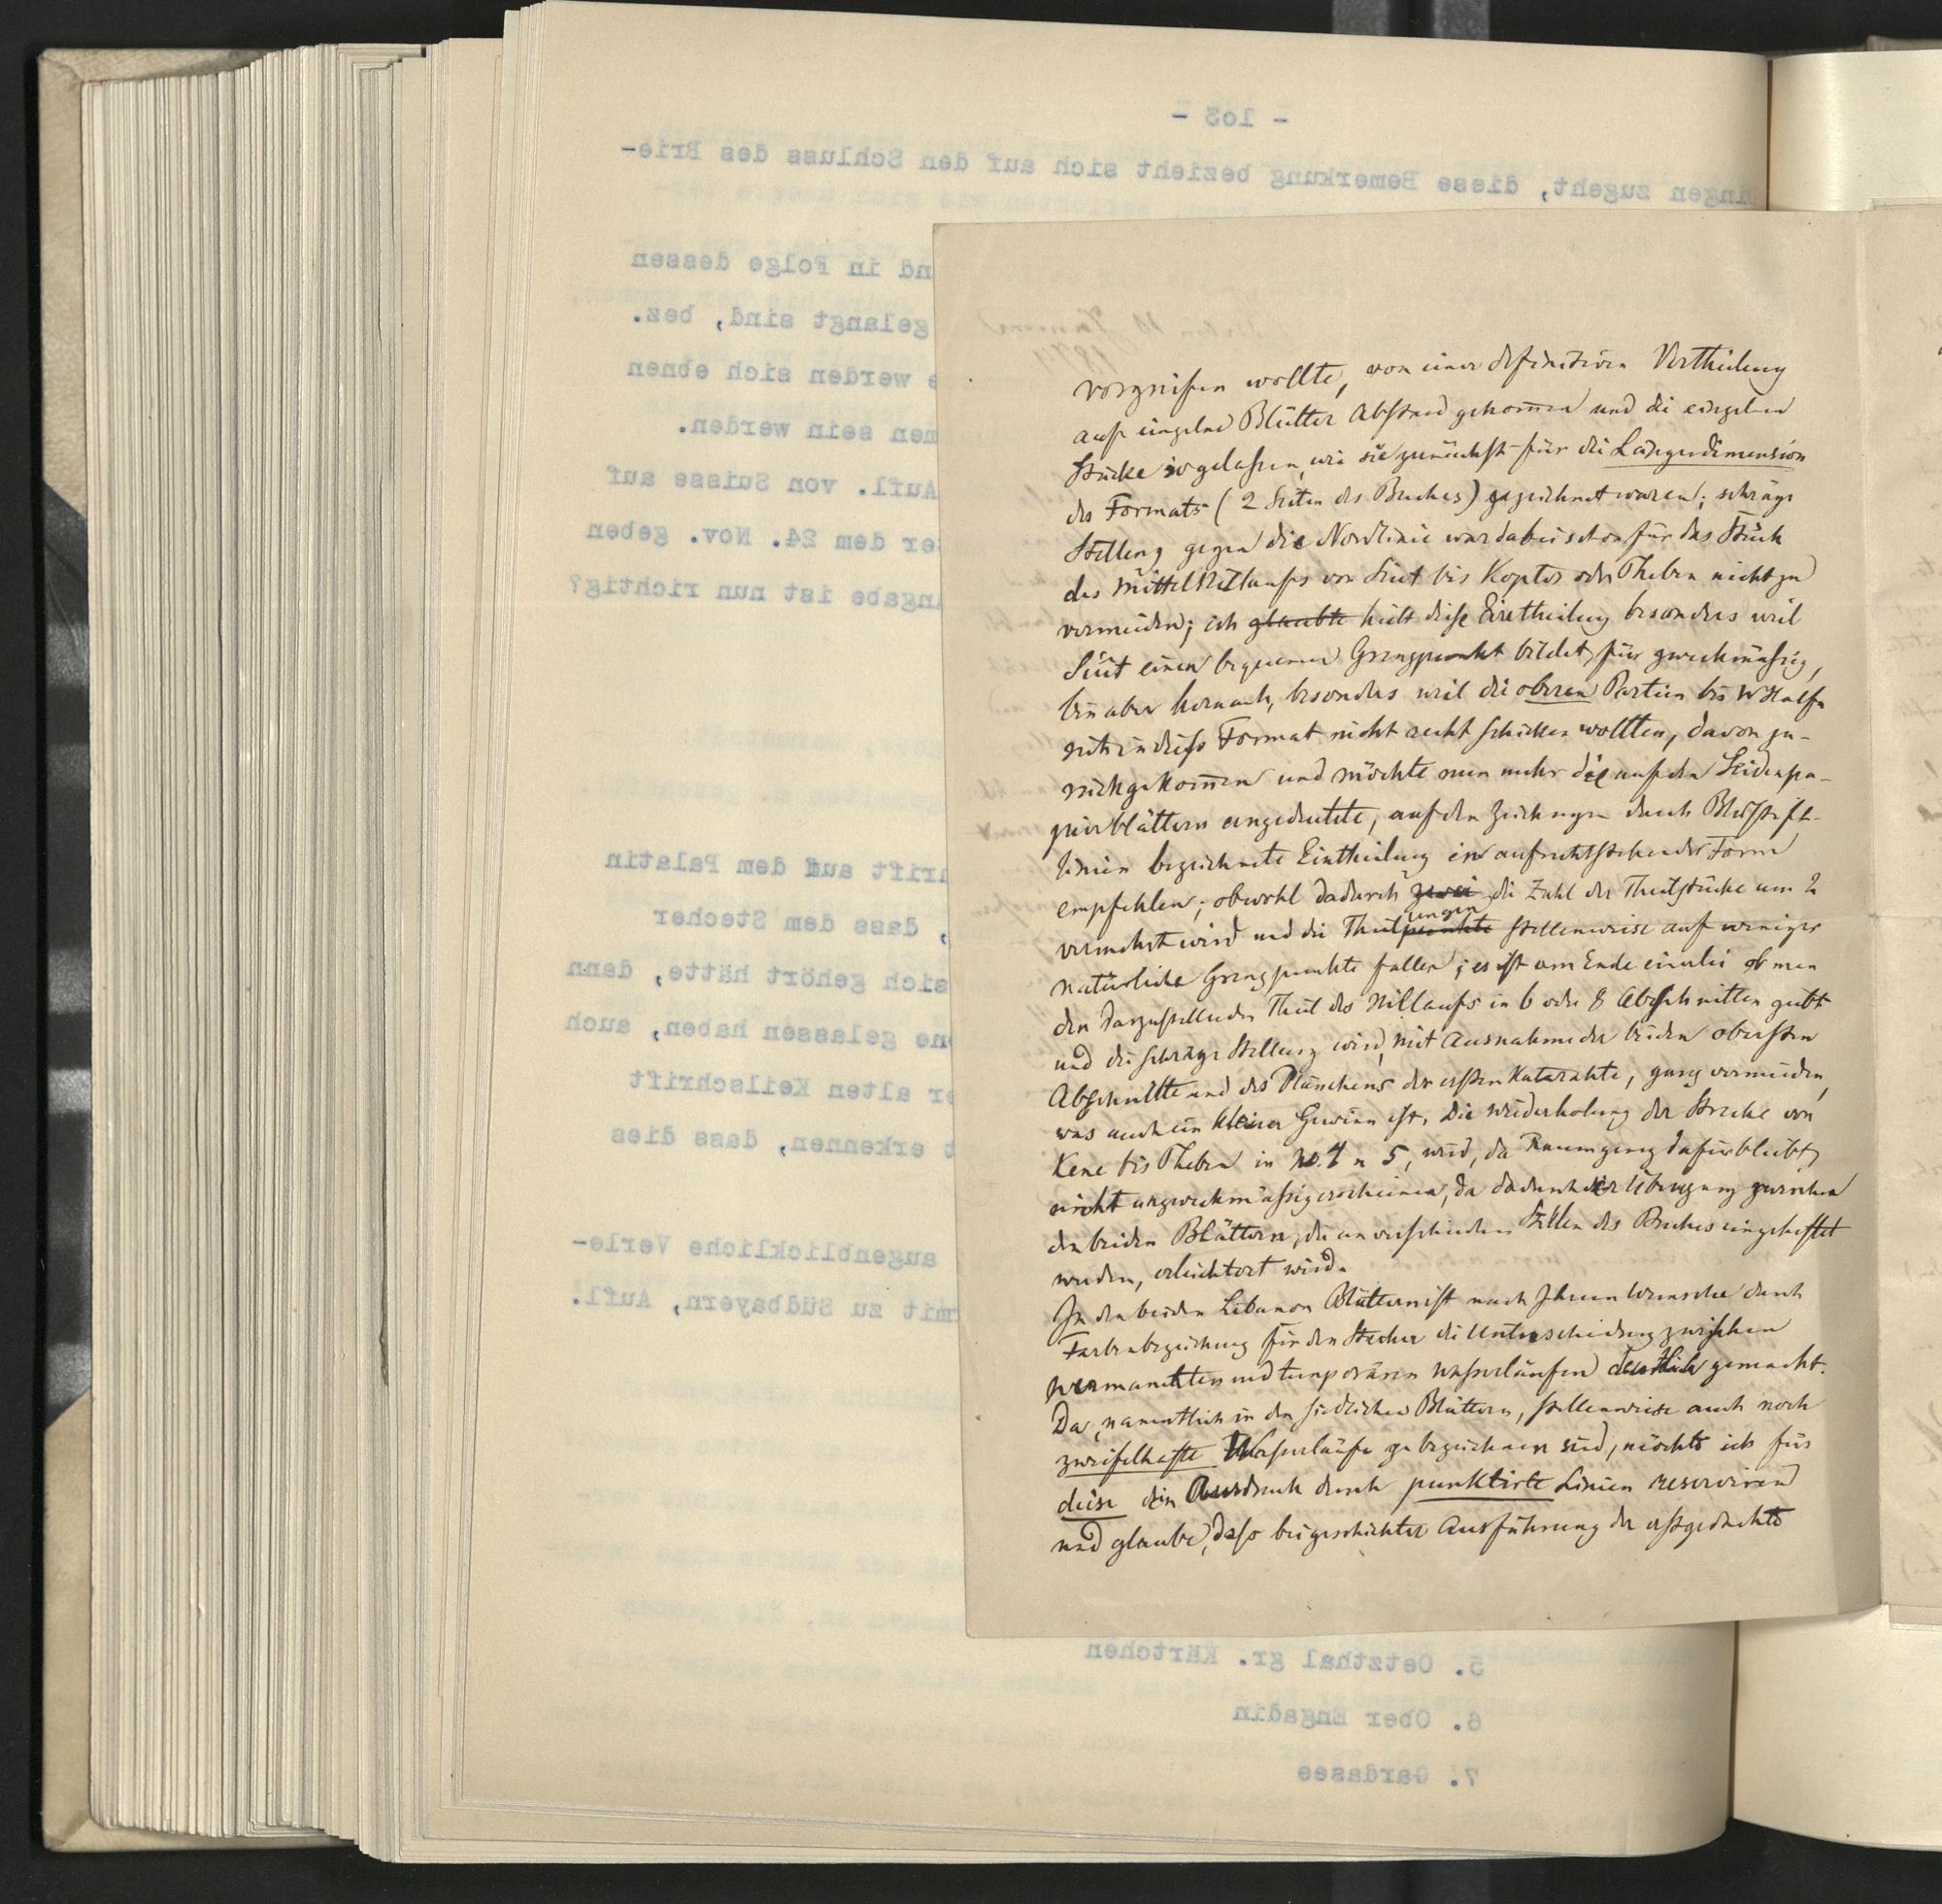 - 103 -
ingen zugeht, diese Bemerkung bezieht sich auf den Schluss des Brie-
nd in Folge dessen
gelangt sind, bez.
e werden sich ebnen
men sein werden.
Aufl. von Suisse auf
er dem 24. Nov. geben
Angabe ist nun richtig?
hrift auf dem Palatin
, dass dem Stecher
sich gehört hätte, dann
ne gelassen haben, auch
er alten Keilschrift
t erkennen, dass dies
augenblickliche Verle-
mit zu Südbayern, Aufl.
5. Oetzthal gr. Kärtchen
6. Ober Engadin
7. Gardasee
vorgreifen wollte, von einer definitiven Vertheilung
auf einzelne Blätter Abstand genom̅en und die einzelnen
Stücke so gelassen, wie sie zunächst für die Längendimension
des Formats (2 Seiten des Buches) gezeichnet waren; schräge
Stellung gegen die Nordlinie war dabei schon für das Stück
des mittel Nillaufes von Siut bis Koptos oder Theben nicht zu
vermeiden; ich glaubte hielt diese Eintheilung besonders weil
Siut einen bequemen Grenzpunkt bildet, für zweckmäßig,
bin aber hernach, besonders weil die oberen Partien bis W Halfa
sich in dieß Format nicht recht schicken wollten, davon zu-
rückgekom̅en und möchte nun mehr die auf den Seidenpa-
pierblättern angedeutete, auf den Zeichnungen durch Bleistift-
linien bezeichnete Eintheilung in aufrechtstehender Form
empfehlen; obwohl dadurch zwei die Zahl der Theilstücke um 2
vermehrt wird und die Theilpunkte ungen stellenweise auf weniger
natürliche Grenzpunkte fallen; es ist am Ende einerlei ob man
den darzustellenden Theil des Nillaufs in 6 oder 8 Abschnitten giebt
und die schräge Stellung wird, mit Ausnahme der beiden obersten
Abschnitte und des Plänchens der ersten Katarakte, ganz vermieden,
was auch ein kleiner Gewinn ist. Die Wiederholung der Strecke von
Kene bis Theben in No. 4 u 5, wird, da Raum genug dafür bleibt,
nicht unzweckmässig erscheinen, da dadurch der Übergang zwischen
den beiden Blättern, die an verschiedenen Stellen des Buches eingeheftet
werden, erleichtert wird.
In den beiden Libanon Blättern ist nach Ihrem Wunsche durch
Farbenbezeichnung für den Stecher die Unterscheidung zwischen
permanenten und temporären Wasserläufen deutlich gemacht.
Da, namentlich in den südlichen Blättern, stellenweise auch noch
zweifelhafte Wasserläufe zu bezeichnen sind, möchte ich für
diese den Ausdruck durch punktirte Linien reserviren
und glaube, daß bei geschickter Ausführung der erstgedachte